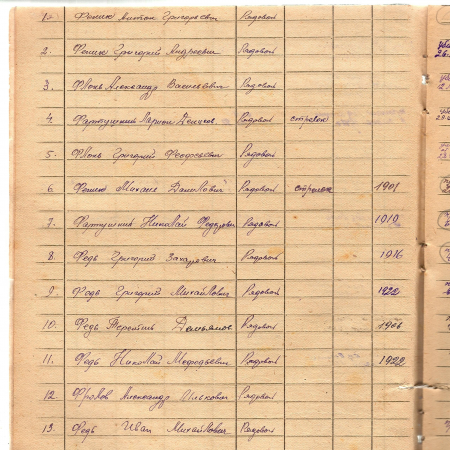 1. Фенюк Антон Григорьевич Рядовой
2. Фенюк Григорий Андреевич Рядовой
3. Флонь Александр Васильевич Рядовой
4. Фартушняк Рядовой стрелок
5. Флонь Григорий Феофаевич Рядовой
6. Фенюк Михаил Данилович Рядовой стрелок 1901
7. Фартушняк Николай Федорович Рядовой 1919
8. Федь Григорий Захарович Рядовой 1916
9. Федь Григорий Михайлович Рядовой 1922
10. Федь Терентий Демьянов Рядовой 1906
11. Федь Николай Мефодьевич Рядовой 1922
12. Фролов Александр Рядовой
13. Федь Иван Михайлович Рядовой